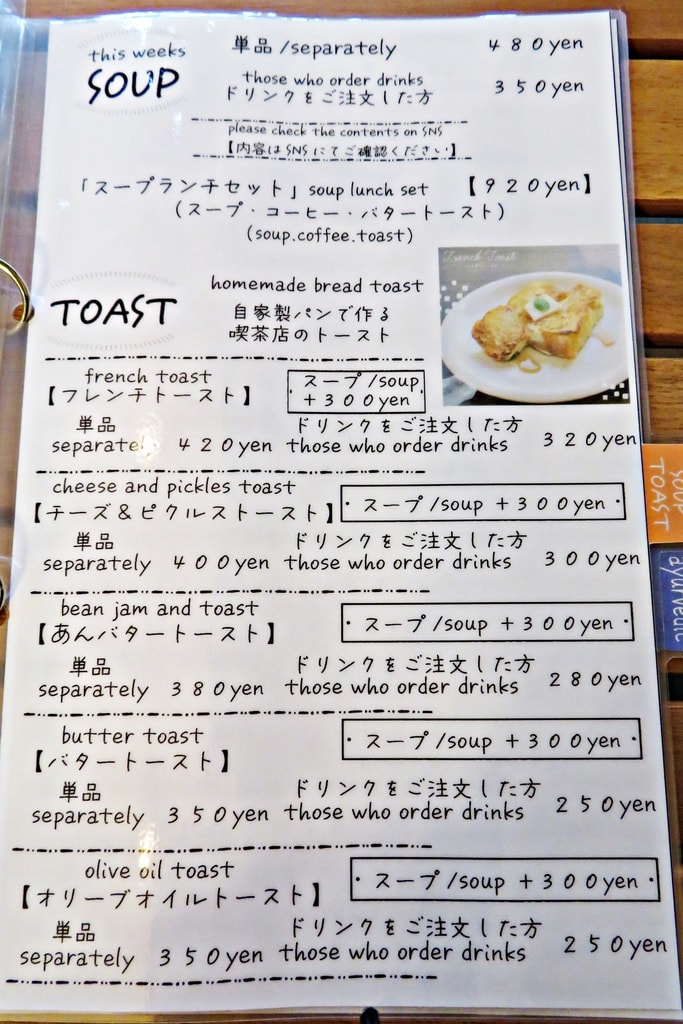 this weeks
SOUP
単品/separately 480yen
those who order drinks
ドリンクをご注文した方 350yen
please check the contents on SNS
【内容はSNSにてご確認ください】
「スープランチセット」soup lunch set 【920yen】
(スープ・コーヒー・バタートースト)
(soup.coffee.toast)
French Toast
TOAST
homemade bread toast
自家製パンで作る
喫茶店のトースト
french toast
【フレンチトースト】
スープ/soup
+300yen
単品 ドリンクをご注文した方
separately 420yen those who order drinks 320yen
cheese and pickles toast
【チーズ&ピクルストースト】
・スープ/soup +300yen・
単品 ドリンクをご注文した方
separately 400yen those who order drinks 300yen
bean jam and toast
【あんバタートースト】
・スープ/soup +300yen・
単品 ドリンクをご注文した方
separately 380yen those who order drinks 280yen
butter toast
【バタートースト】
・スープ/soup +300yen・
単品 ドリンクをご注文した方
separately 350yen those who order drinks 250yen
olive oil toast
【オリーブオイルトースト】
・スープ/soup +300yen・
単品 ドリンクをご注文した方
separately 350yen those who order drinks 250yen
SOUP
TOAST
ayurvedic